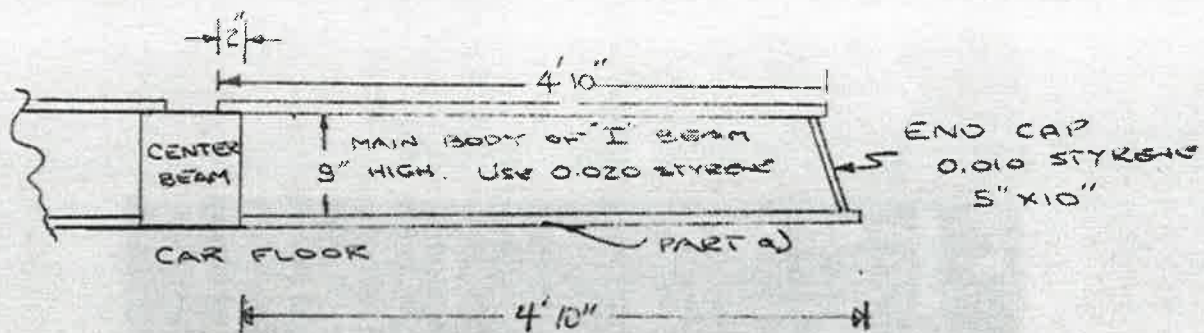 2"
4' 10"
CENTER
BEAM
MAIN BODY OF "I" BEAM
9" HIGH. USE 0.020 STYRENE
END CAP
0.010 STYRENE
5" X 10"
CAR FLOOR
PART a)
4' 10"